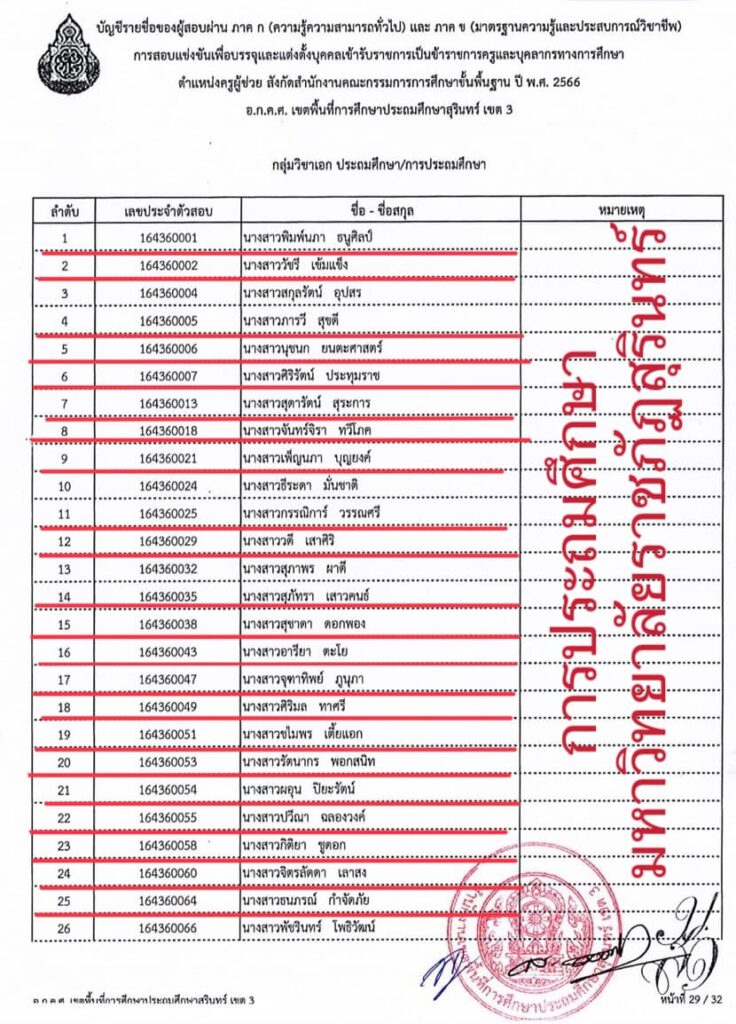 บัญชีรายชื่อของผู้สอบผ่าน ภาค ก (ความรู้ความสามารถทั่วไป) และ ภาค ข (มาตรฐานความรู้และประสบการณ์วิชาชีพ)
การสอบแข่งขันเพื่อบรรจุและแต่งตั้งบุคคลเข้ารับราชการเป็นข้าราชการครูและบุคลากรทางการศึกษา
ตำแหน่งครูผู้ช่วย สังกัดสำนักงานคณะกรรมการการศึกษาขั้นพื้นฐาน ปี พ.ศ. 2566
อ.ก.ค.ศ. เขตพื้นที่การศึกษาประถมศึกษาสุรินทร์ เขต 3
กลุ่มวิชาเอก ประถมศึกษา/การประถมศึกษา
ลำดับ เลขประจำตัวสอบ ชื่อ - ชื่อสกุล หมายเหตุ
1 164360001 นางสาวพิมพ์นภา ธนูศิลป์
2 164360002 นางสาววัชรี เข้มแข็ง
3 164360004 นางสาวสกุลรัตน์ อุปสร
4 164360005 นางสาวภารวี สุขดี
5 164360006 นางสาวนุชนก ยนตะศาสตร์
6 164360007 นางสาวศิริรัตน์ ประทุมราช
7 164360013 นางสาวสุดารัตน์ สุระการ
8 164360018 นางสาวจันทร์จิรา ทวีโภค
9 164360021 นางสาวเพ็ญนภา บุญยงค์
10 164360024 นางสาวธีระดา มั่นชาติ
11 164360025 นางสาวกรรณิการ์ วรรณศรี
12 164360029 นางสาววดี เสาศิริ
13 164360032 นางสาวสุภาพร ผาดี
14 164360035 นางสาวสุภัทรา เสาวคนธ์
15 164360038 นางสาวสุชาดา ดอกพอง
16 164360043 นางสาวอารียา ตะโย
17 164360047 นางสาวจุฑาทิพย์ ภูนุภา
18 164360049 นางสาวศิริมล ทาศรี
19 164360051 นางสาวชไมพร เตี้ยแอก
20 164360053 นางสาวรัตนากร พอกสนิท
21 164360054 นางสาวผอุน ปิยะรัตน์
22 164360055 นางสาวปวีณา ฉลองวงค์
23 164360058 นางสาวกิติยา ชูดอก
24 164360060 นางสาวจิตรลัดดา เลาสง
25 164360064 นางสาวธนภรณ์ กำจัดภัย
26 164360066 นางสาวพัชรินทร์ โพธิวัฒน์
การประถมศึกษา
มหาวิทยาลัยราชภัฏสุรินทร์
อ.ก.ค.ศ. เขตพื้นที่การศึกษาประถมศึกษาสุรินทร์ เขต 3
หน้าที่ 29 / 32